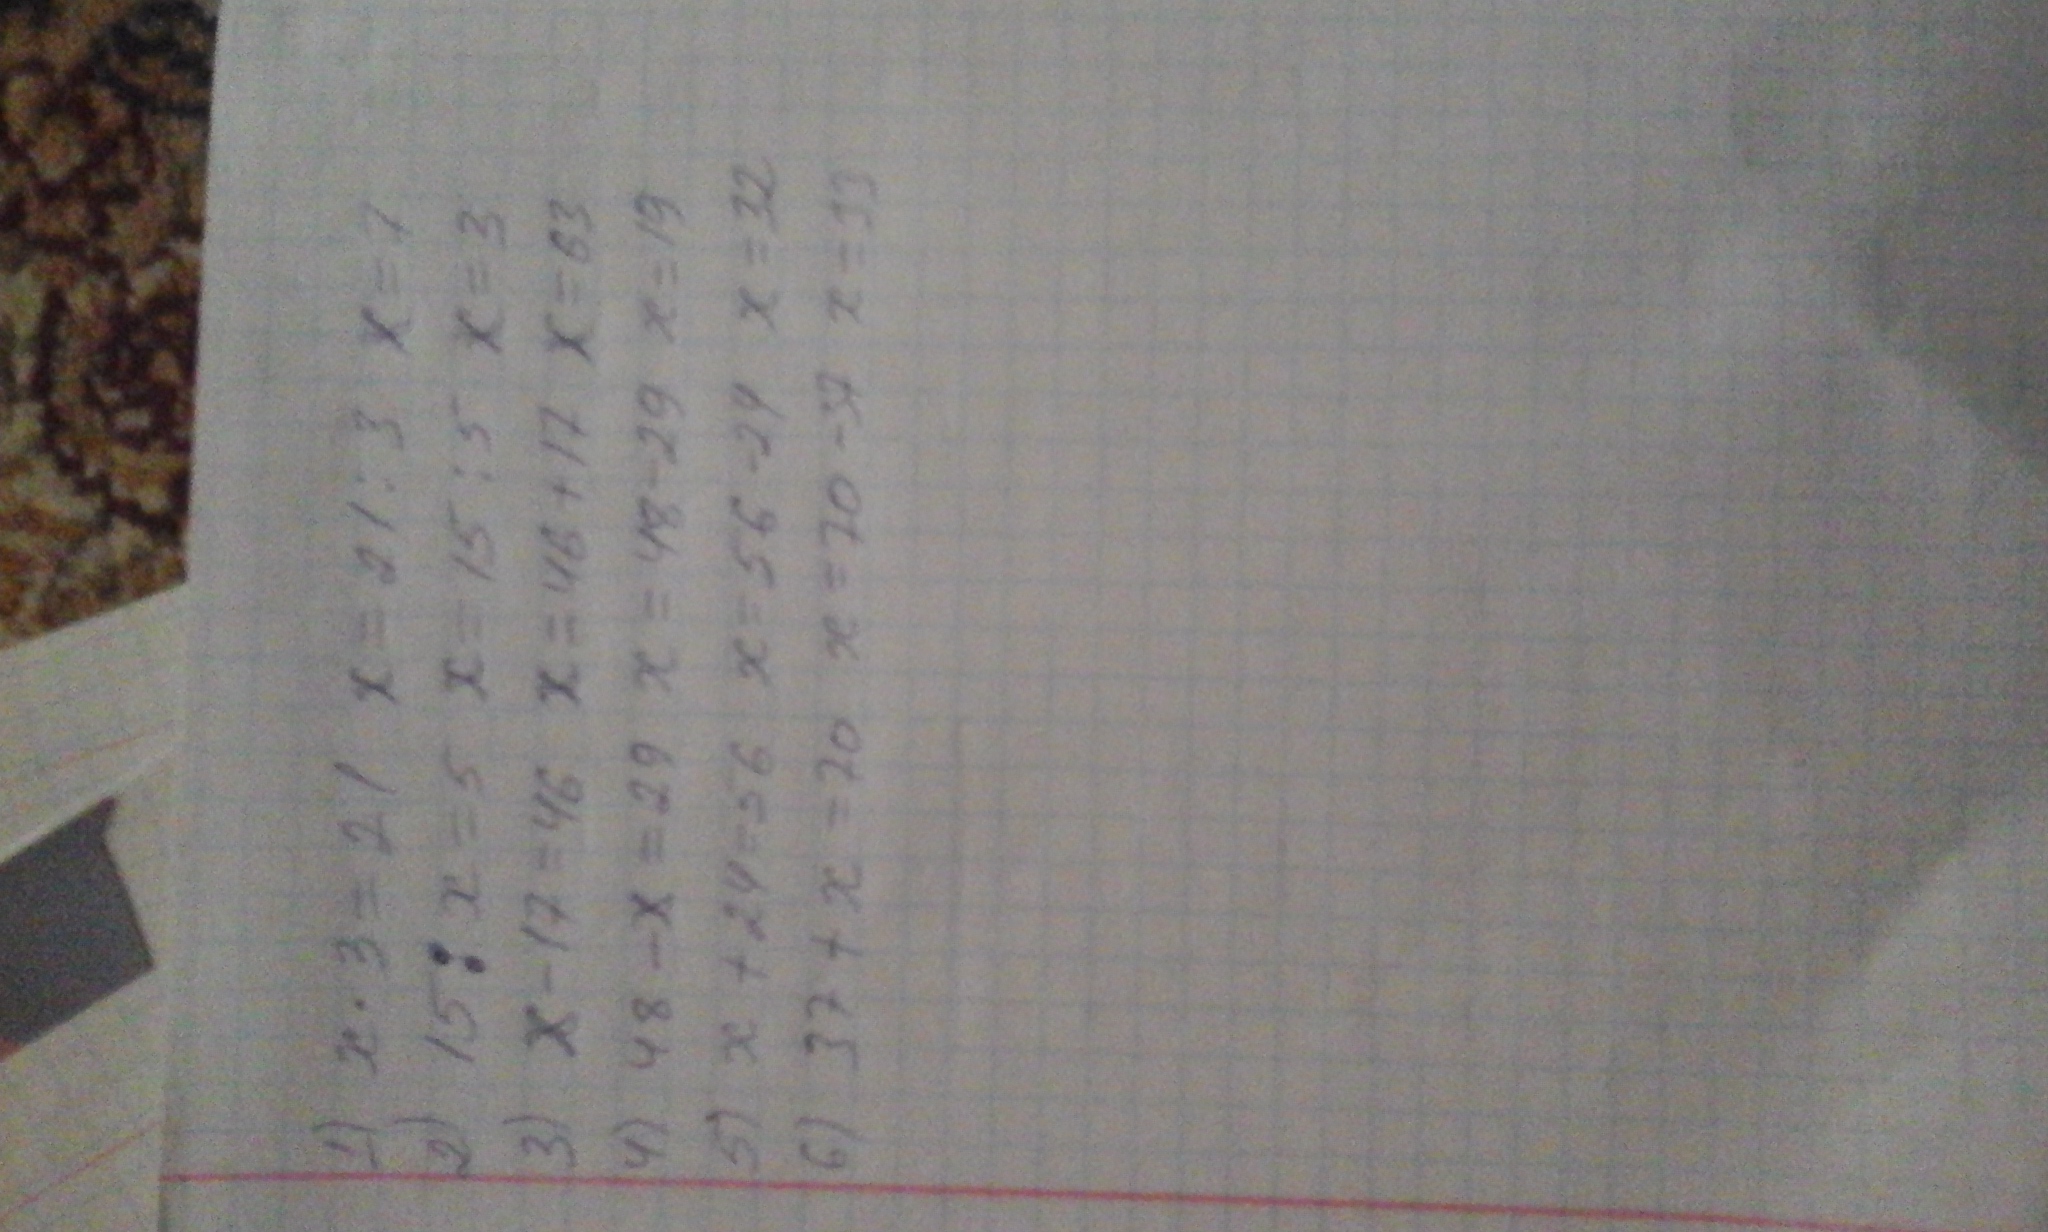 1) x · 3 = 21 x = 21 : 3 x = 7
2) 15 : x = 5 x = 15 : 5 x = 3
3) x - 17 = 46 x = 46 + 17 x = 63
4) 48 - x = 29 x = 48 - 29 x = 19
5) x + 24 = 56 x = 56 - 24 x = 32
6) 37 + x = 70 x = 70 - 37 x = 33